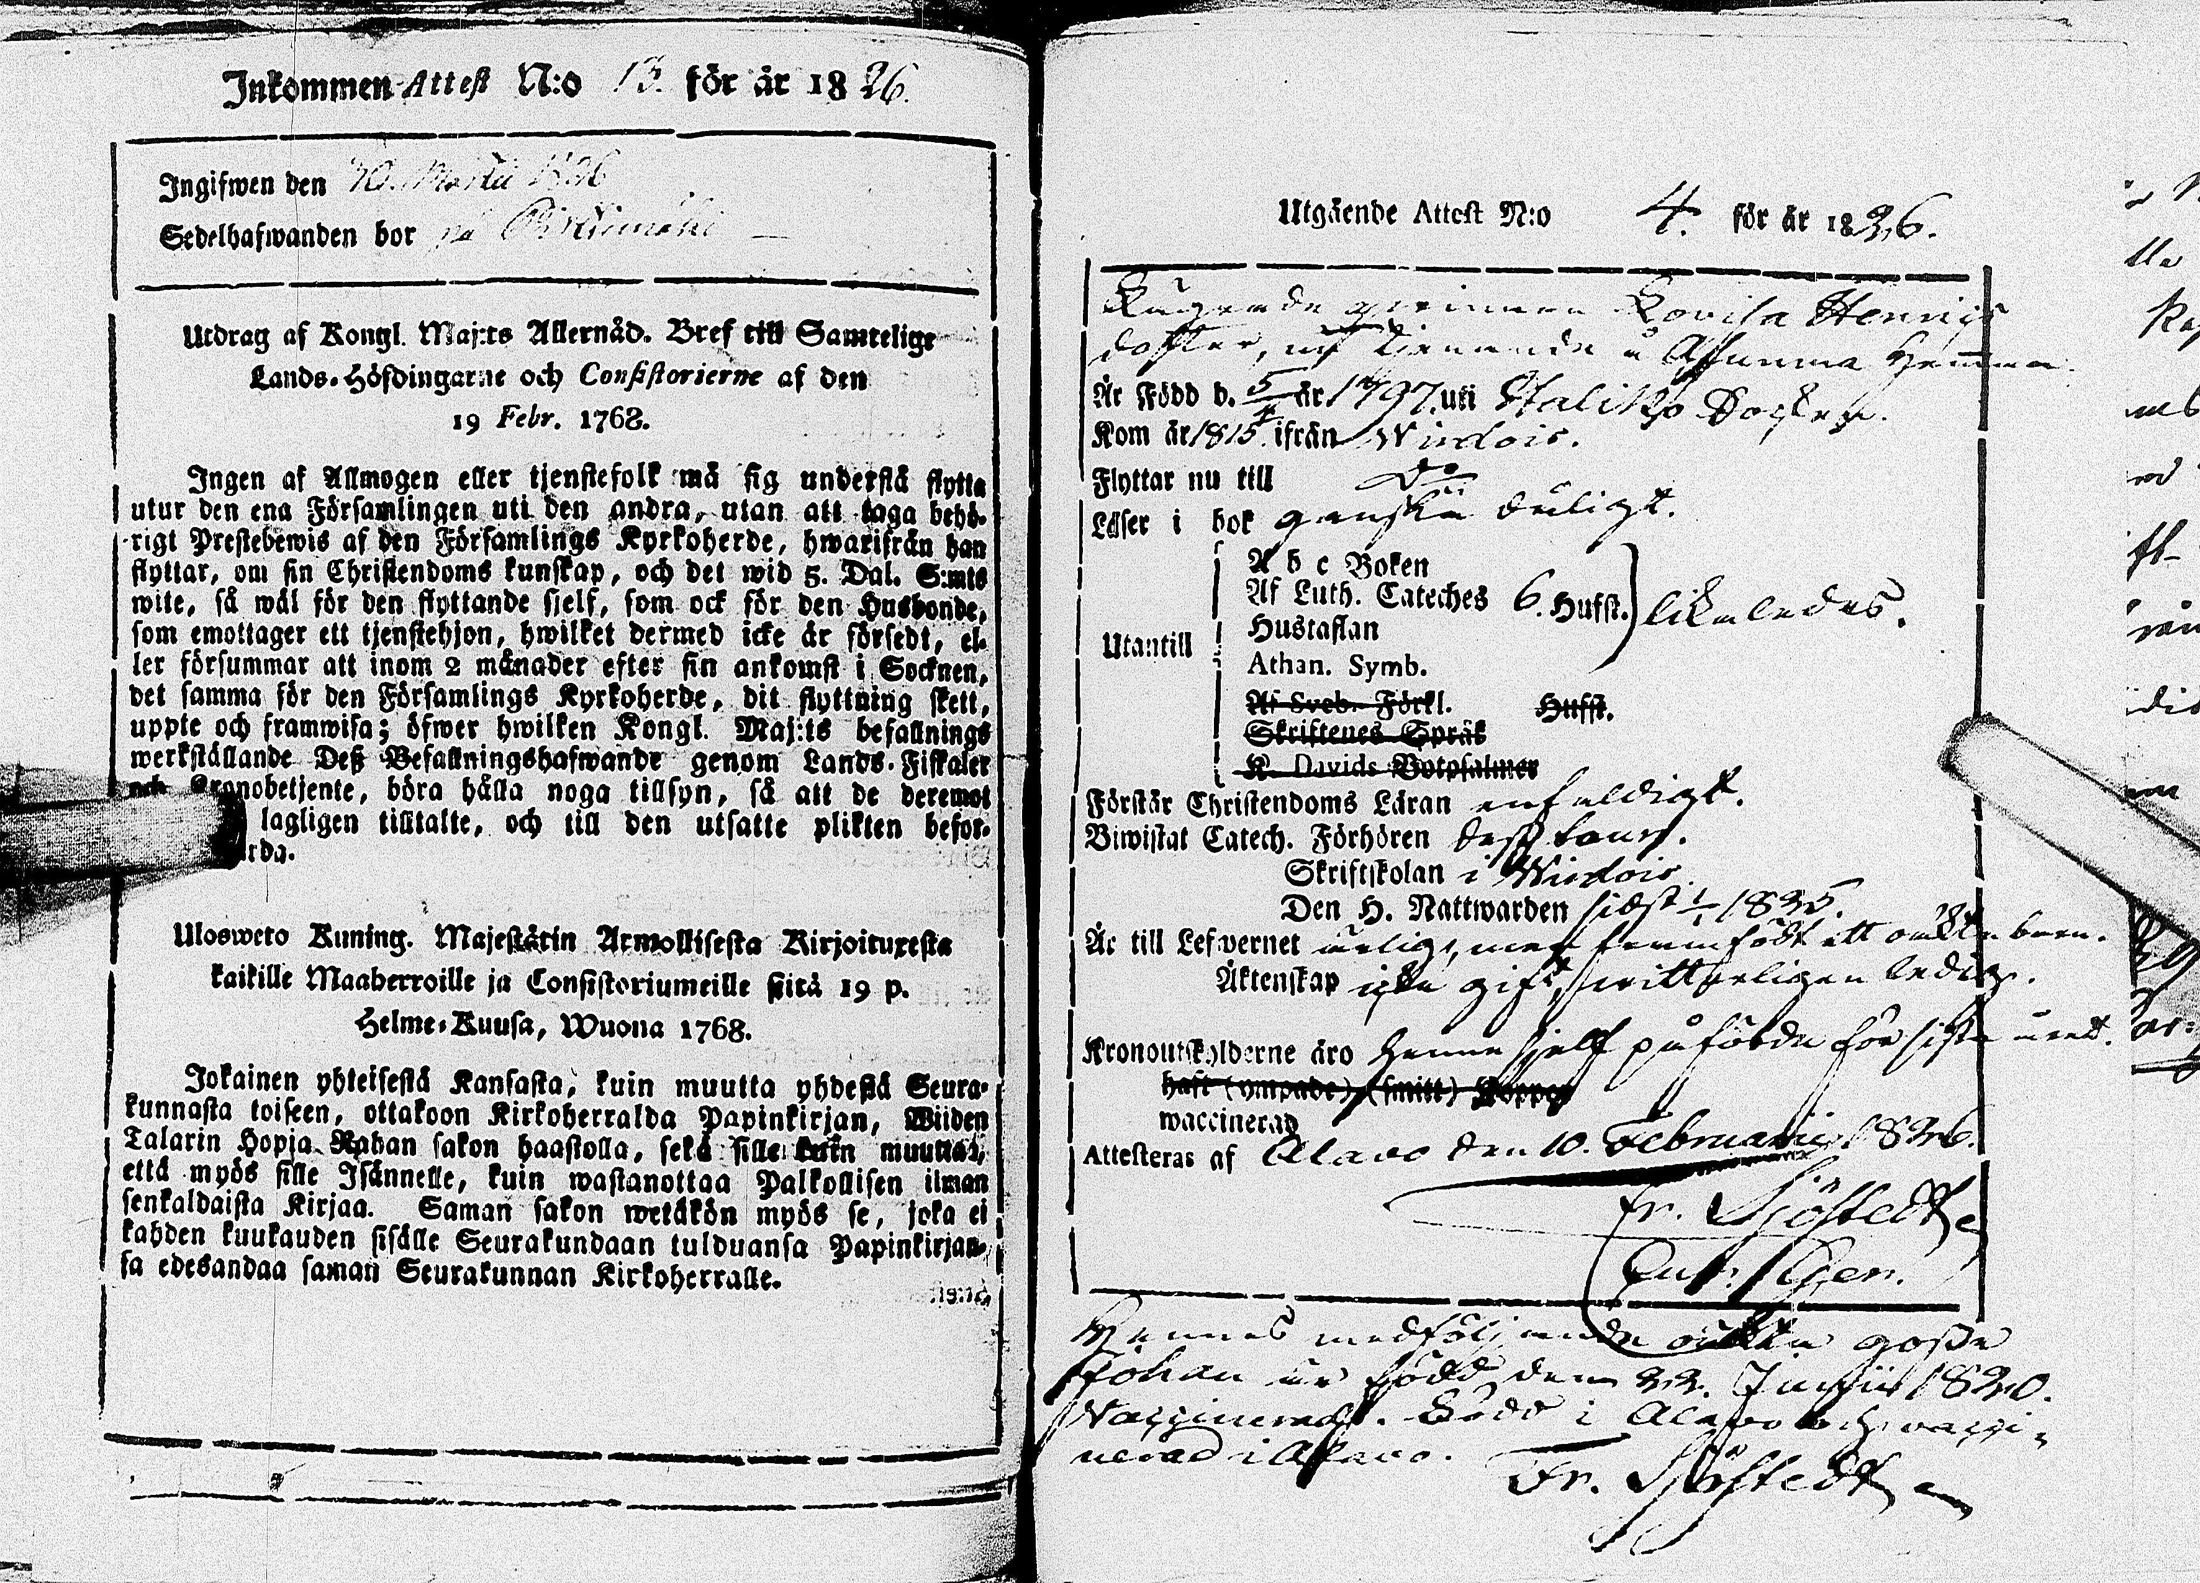 Inkommen Attest N:o 13. för år 1826.
Ingifwen den 20. Martii 1826
Sedelhafwanden bor på
Utdrag af Kongl. Maj:ts Allernåd. Bref till Samtelige
Lands-Höfdingarne och Consistorierne af den
19 Febr. 1768.
Ingen af Allmogen eller tjenstefolk må sig understå flytta
utur den ena Församlingen uti den andra, utan att taga behö-
rigt Prestebewis af den Församlings Kyrkoherde, hwarifrån han
flyttar, om sin Christendoms kunskap, och det wid 5. Dal. S:mts
wite, så wäl för den flyttande sjelf, som ock för den Husbonde,
som emottager ett tjenstehjon, hwilket dermed icke är försedt, el-
ler försummar att inom 2 månader efter sin ankomst i Socknen,
det samma för den Församlings Kyrkoherde, dit flyttning skett,
uppte och framwisa; öfwer hwilken Kongl. Maj:ts befallnings
werkställande Deß Befallningshafwande genom Lands-Fiskaler
och Kronobetjente, böra hålla noga tillsyn, så att de deremot
lagligen tilltalte, och till den utsatte plikten befor-
rda.
Ulosweto Kuning. Majestätin Armollisesta Kirjoituxesta
kaikille Maaherroille ja Consistoriumeille siitä 19 p.
Helme-Kuusa, Wuona 1768.
Jokainen yhteisestä Kansasta, kuin muutta yhdestä Seura-
kunnasta toiseen, ottakoon Kirkoherralda Papinkirjan, Wiiden
Talarin Hopja Rahan sakon haastolla, sekä sille kuin muuttaa,
että myös sille Isännelle, kuin wastanottaa Palkollisen ilman
senkaldaista Kirjaa. Saman sakon wetäkön myös se, joka ei
kahden kuukauden sisälle Seurakundaan tulduansa Papinkirjan-
sa edesandaa saman Seurakunnan Kirkoherralle.
Utgående Attest N:o 4. för år 1826.
qwinnan Lovisa Henrics
dotter, nu tjenande å Asunma Hemman.
Är Född d. 5/4 år 1797. uti Socken.
Kom år 1815 ifrån Wirdois.
Flyttar nu till Do
Läser i bok ganska duligt.
Utantill
A b c Boken
Af Luth. Cateches 6. Hufst. likaledes.
Hustaflan
Athan. Symb.
Af Sveb. Förkl. Hufst.
Skriftenes Språk
K. Davids Botpsalmer
Förstår Christendoms Läran enfaldigt.
Biwistat Catech. Förhören
Skriftskolan i Wirdois
Den H. Nattwarden sidst 1/1 1826.
Är till Lefwernet ärlig, men framfödt ett oäkta barn.
Äktenskap icke gift, witterligen ledig.
Kronoutskylderne äro henne sjelf påförda för sista året.
haft (ympade) (smitt) Koppor
waccinerad
Attesteras af Alavo den 10. Februarii 1826.
Fr. Sjöstedt
Hennes medföljande oäkta goße
Johan är född den 22. Junii 1820.
Vaccinerad. Född i Alavo och vacci-
nerad i Alavo.
Fr. Sjöstedt